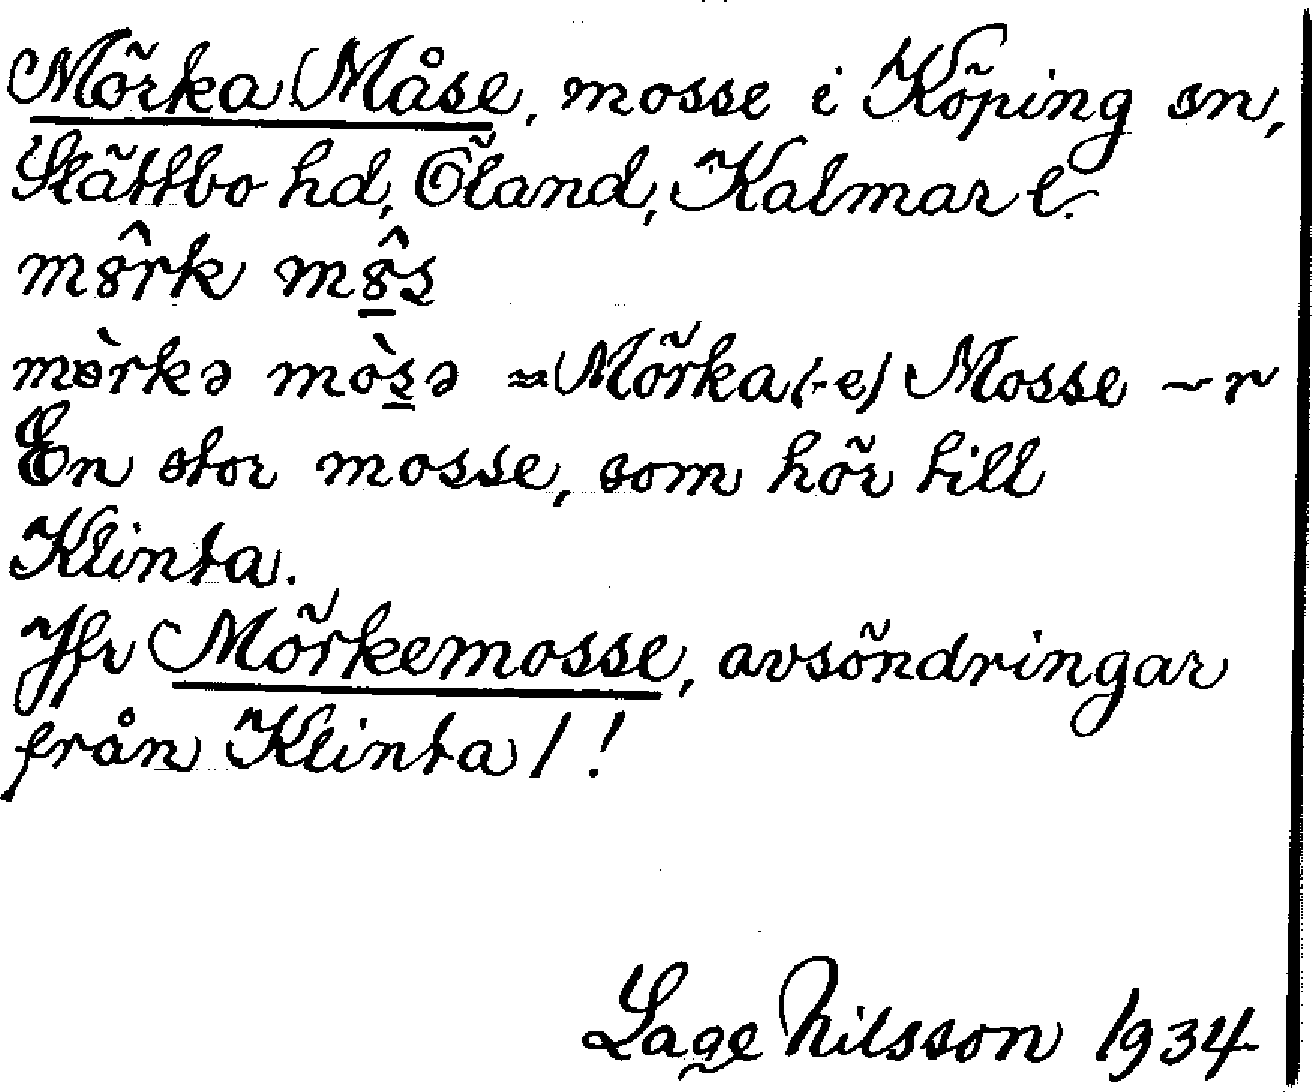 Mörka Måse, mosse i Köping sn,
Slättbo hd, Öland, Kalmar l.
mörka Mosse -r
En stor mosse, som hör till
Klinta.
Jfr Mörkemosse, avsöndringar
från Klinta /!
Lage Nilsson 1934